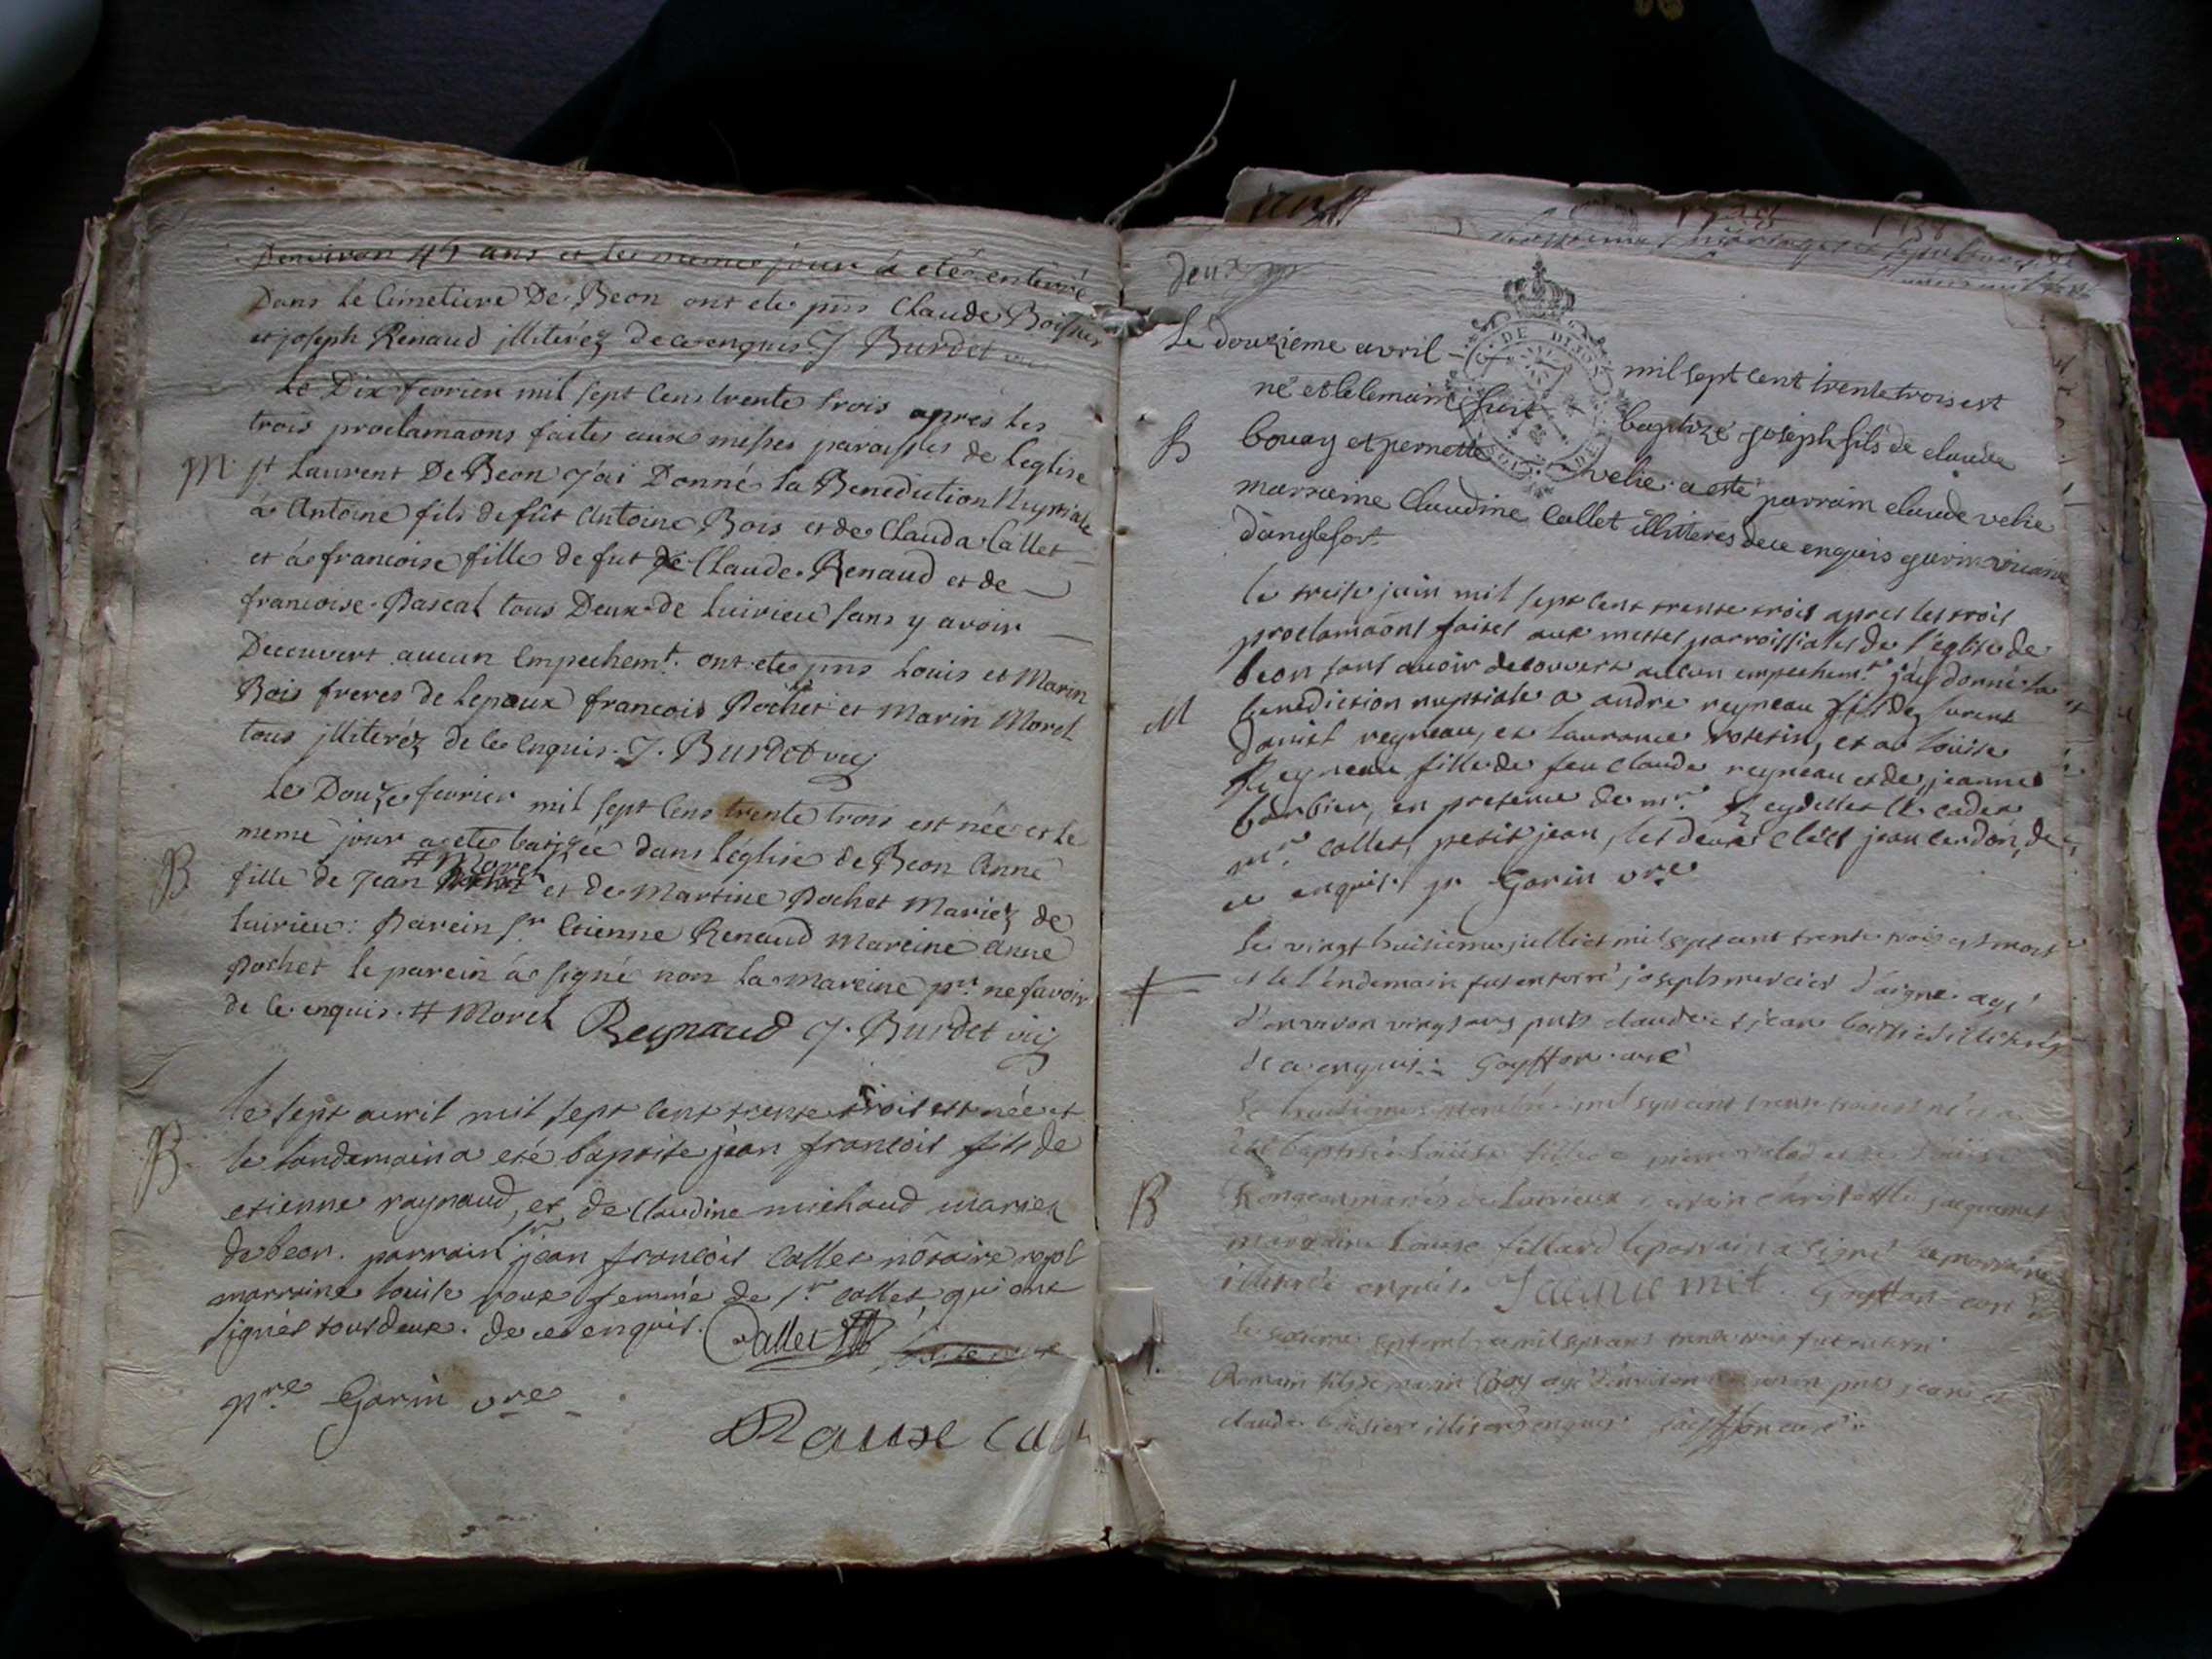 Denviron 45 ans et le meme jour a eté enterré
Dans le Cimetiere De Beon ont ete pns Claude Boissier
et joseph Renaud illiteréz de ce enquis J Burdet
Le Dix fevrier mil sept Cens trente trois apres les
trois proclamaons faites aux messes paroissles de leglise
M st Laurent De Beon J'ai Donné la Benediction Nuptiale
à Antoine fils de fût Antoine Bois et de Clauda Callet
et à francoise fille de fut de Claude Renaud et de
francoise Pascal tous Deux de luirieu sans y avoir
Decouvert aucun Empechemt. ont ete pns Louis et Marin
Bois freres de lepaux francois Pochet et Marin Morel
tous illiteréz de ce Enquis. J. Burdet vic
Le Douze fevrier mil sept Cens trente trois est née et le
meme jour a ete batisée dans léglise de Beon Anne
# Morel
B fille de Jean et de Martine Pochet Mariéz de
luirieu: Parein sr Etienne Renaud Mareine Anne
Pochet le parein à signé non la Mareine pr. ne savoir
de ce enquis. # Morel Reynaud J. Burdet vic
le sept avril mil sept cent trente trois est née et
B. le landemain a eté baptise jean francois fils de
etienne raynaud, et de Claudine michaud mariez
sr
de beon. parrain jean francois Callet nôtaire royal
marraine louise roux femme de sr. Callet qui ont
signés tous deux. de ce enquis. Callet
pre. Garin vre
Rouxe Call
deux
Le douzieme avril mil sept cent trente trois est
né et le lemain fuit baptizé joseph fils de claude
B bouay et pernette velie a esté parrain claude velie
marraine Claudine Callet illitterés de ce enquis garin vicaire
d'anglefort
le treise juin mil sept cent trente trois apres les trois
proclamaons faites aux messes parroissiales de l'eglise de
beon sans avoir decouvert aucun empechemt. j'ay donné la
M benediction nuptiale a andre reyneau fils de
daniel reyneau, et laurance, et a louise
Reyneau fille de feu claude reyneau et de jeanne
barbier, en presence de mr. Reydellet le cadet
mr. Callet, petit jean, les deux jean cendon, de
ce enquis. pr Garin vre
Le vingt huitieme julliet mil sept cent trente trois est mort
et le lendemain fut enterré joseph mercier d'aigne agé
d'environ vingt ans pnts claude et jean boissier illiterés
de ce enquis. Goyffon curé
Le mil sept cent trente trois est née et a
été baptisée Louise fille de pierre et de Louise
B mariés de Luirieux parrain christofle jacquemet
marraine Louise Fillard le parrain a signé la marraine
illiterée enquis. Jacquemet. Goyffon curé
Le septembre mil sept cent trente trois fut enterré
Romain fils de marin Boy agé d'environ pnts jean et
claude boissier illiterés enquis Goyffon curé